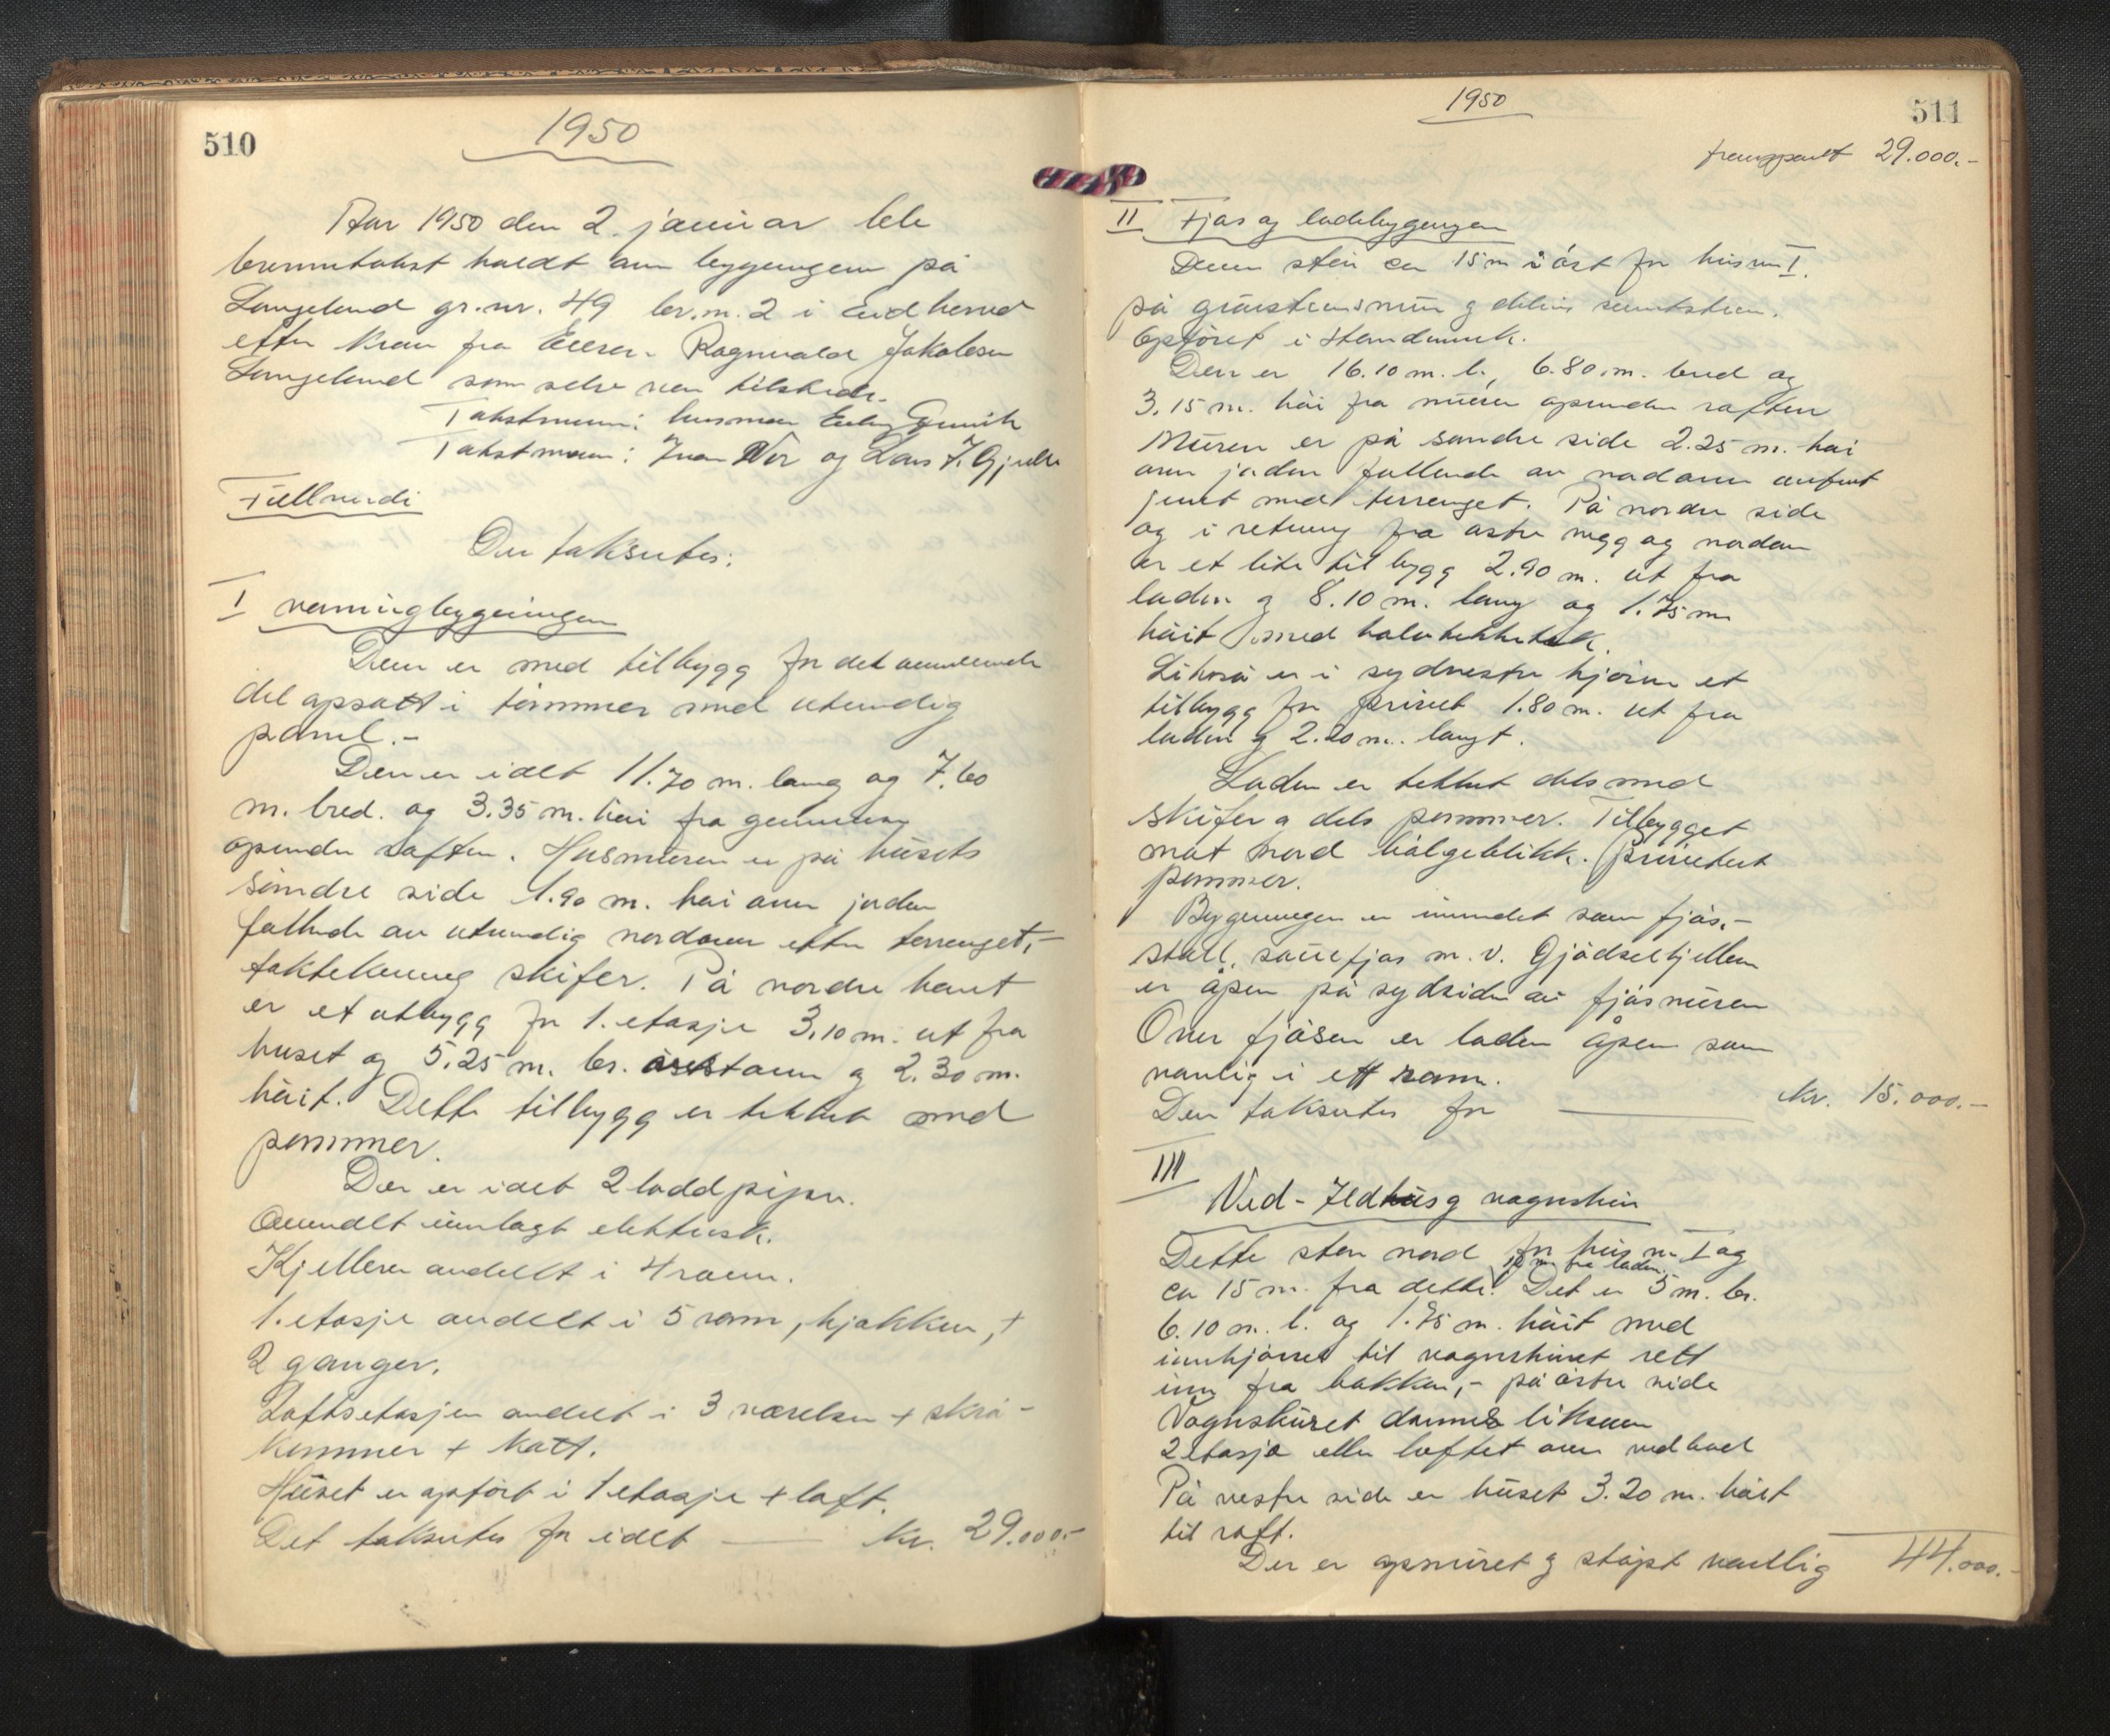 510
1950
Aar 1950 den 2. januar ble
branntakst holdt over bygningen på
Langeland gr.nr. 49 br.nr. 2 i Eid herred
efter krav fra Eieren Ragnvald Jakobsen
Langeland som selv var tilstede.
Takstmenn: lensmann
Takstmenn: Ivar og Lars J. Gjelle
Fullverdi
Der takseres:
I våningbygningen
Den er med tilbygg for det
del opsatt i tømmer med utvendig
panel.-
Den er i alt 11.70 m. lang og 7.60
m. bred. og 3.35 m. høi fra grunnmur
øvende raften. Husmuren er på husets
søndre side 1.90 m. høi over jorden
fallende av utvendig nordover efter terrenget,-
taktekning skifer. På nordre kant
er et utbygg for 1. etasje 3.10 m. ut fra
huset og 5.25 m. br. østover og 2.30 m.
høit. Dette tilbygg er tekket med
pommer.
Der er i alt 2 lodd piper.
Overalt innlagt elektrisk.
Kjelleren avdelt i 4 rom.
1. etasje avdelt i 5 rom, kjøkken, +
2 ganger.
Loftsetasjen avdelt i 3 værelser + skrå-
kammer + kott.
Huset er opført i 1 etasje + loft.
Det takseres for i alt — kr. 29.000.-
511
1950
transport 29.000.-
II Fjøs og ladebygningen
Denne står ca 15 m i øst for hus nr I.
på gråsteinsmur og delvis sementstein.
Opføret i
Den er 16.10 m. l., 6.80 m. bred og
3.15 m. høi fra muren øvende raften
Muren er på søndre side 2.25 m. høi
over jorden fallende av nordover
jevnt med terrenget. På nordre side
og i retning fra østre vegg og nordover
er et lite tilbygg 2.90 m. ut fra
laden og 8.10 m. lang og 1.75 m
høit med halvtekketak.
Likeså er i sydvestre hjørne et
tilbygg for privet 1.80 m. ut fra
laden og 2.20 m. langt.
Laden er tekket dels med
skifer og dels pommer. Tilbygget
mot nord bølgeblikk. privetet
pommer.
Bygningen er innredet som fjøs,-
stall, sauefjøs m. v. Gjødselkjelleren
er åpen på sydsiden av fjøsmuren
Over fjøsen er laden åpen som
vanlig i ett rom.
Den takseres for — kr. 15.000.-
III
Ved- Ildhus og vognskur
Dette står nord for hus nr. I og
12 m fra laden.
ca 15 m. fra dette. Det er 5 m. br.
6.10 m. l. og 1.75 m. høit med
innkjørsel til vognskuret rett
inn fra bakken,- på østre side
Vognskuret danner liksom
2 etasje eller loftet over vedbod
På vestre side er huset 3.20 m. høit
til raft.
Der er opmuret og støpt vanlig
44.000.-